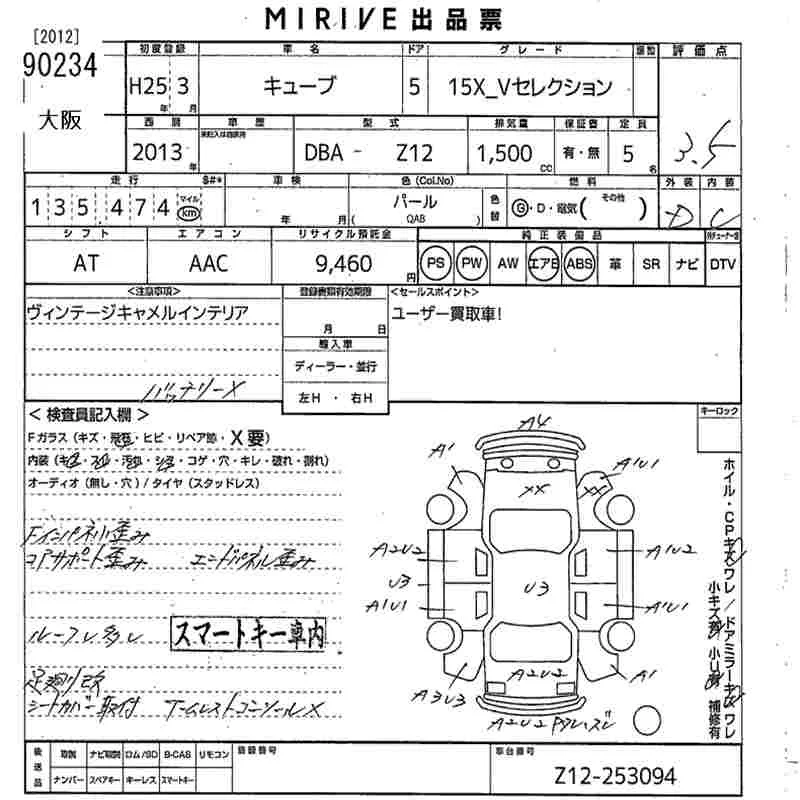 MIRIVE 出品票
[2012]
90234
大阪
初度登録 車名 ドア グレード 評価点
H25 3 キューブ 5 15X_Vセレクション
年 月
3.5
西暦 車歴 型式 排気量 保証書 定員
2013 年 DBA - Z12 1,500 cc 有・無 5 名
走行 車検 色 (Col.No) 燃料 外装 内装
135,474 マイル km 年 月 パール ( QAB ) 色替 G・D・電気 ( その他 ) D C
シフト エアコン リサイクル預託金 純正装備品
AT AAC 9,460 円 PS PW AW エアB ABS 革 SR ナビ DTV
<注意事項> 登録書類有効期限 <セールスポイント>
ヴィンテージキャメルインテリア ユーザー買取車!
月 日
輸入車
ディーラー・並行
バッテリーX 左H ・ 右H
< 検査員記入欄 > キーロック
Fガラス (キズ・飛石・ヒビ・リペア跡・X要)
内装 (キズ・スレ・汚れ・シミ・コゲ・穴・キレ・破れ・割れ)
オーディオ (無し・穴) / タイヤ (スタッドレス)
Fインパネ小歪み
コアサポート歪み エンドパネル歪み
ルーフレ多レ スマートキー車内
シートカバー取付 アームレストコンソールX
A4
A1 A1U1
XX XX
A2U2 A1U2
U3 U3
A1U1 A1U1
A2U2
A3U3 A1
A2U2
ホイル・CPキズワレ/ドアミラーキズワレ
小キズ 小U 補修有
後送品 取説 ナビ取説 ロム/SD B-CAS リモコン 登録番号 車台番号
ナンバー スペアキー キーレス スマートキー Z12-253094